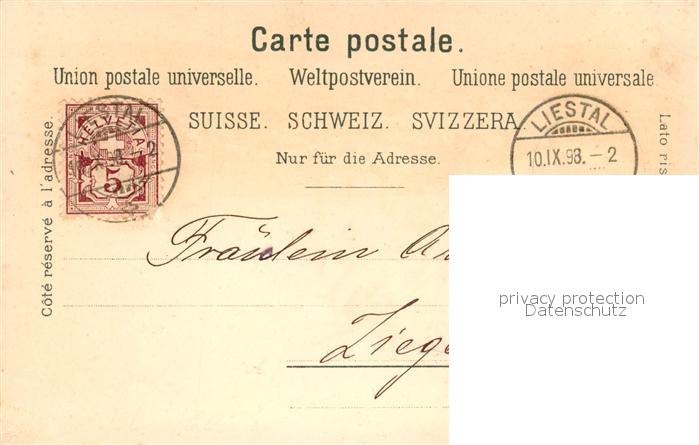 Carte postale.
Union postale universelle. Weltpostverein. Unione postale universale
SUISSE. SCHWEIZ. SVIZZERA.
Nur für die Adresse.
Côté réservé à l'adresse.
Lato ris
LIESTAL
HELVETIA
5
LIESTAL
10.IX.98.–2
Fräulein
Zieg
privacy protection
Datenschutz